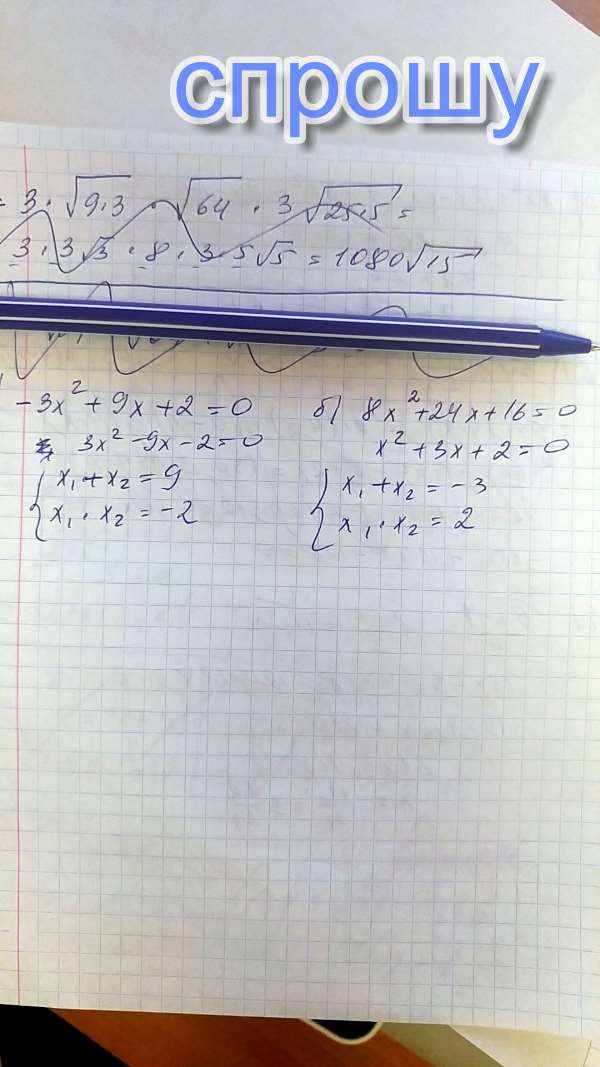 спрошу
= 3 · √9·3 · √64 · 3 √25·5 =
3 · 3√3 · 8 · 3 · 5√5 = 1080√15
-3x² + 9x + 2 = 0
3x² - 9x - 2 = 0
{ x₁ + x₂ = 9
x₁ · x₂ = -2
б) 8x² + 24x + 16 = 0
x² + 3x + 2 = 0
{ x₁ + x₂ = -3
x₁ · x₂ = 2